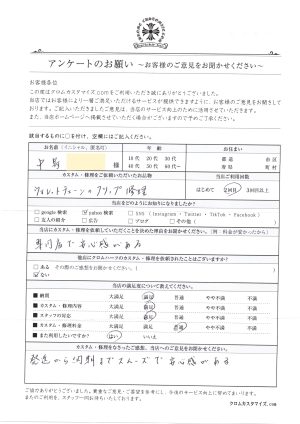 アンケートのお願い ～お客様のご意見をお聞かせください～
お客様各位
この度はクロムカスタマイズ.comをご利用いただき誠にありがとうございました。
当店ではお客様により一層ご満足いただけるサービスが提供できますように、お客様のご意見をお聞きして
おります。ご記入いただきましたご意見は、当店のサービス向上のために活用させていただきます。
また、当店ホームページへ掲載させていただく場合がございますので予めご了承ください。
該当するものに○を付け、空欄にはご記入ください。
お名前（イニシャル、匿名可） 年齢 お住まい
様 10代 20代 30代 40代 50代 60代～ 都道府県 市区町村
カスタム・修理をご依頼いただいたお品物 当店ご利用回数
ウォレットチェーンのクリップ修理 はじめて 2回目 3回以上
当店をどのようにお知りになりましたか？
□ google 検索 ☑ yahoo 検索 □ SNS（Instagram・Twitter・TikTok・Facebook）
□ 友人の紹介 □ 広告 □ ブログ □ その他（ ）
当店にカスタム・修理をしていただくことを決めた理由をお聞かせください。（例：料金が安かったから）
専門店で安心感がある
他店にクロムハーツのカスタム・修理を依頼されたことはございますか？
□ ある その際のご感想をお聞かせください。（ ）
☑ ない
当店の満足度について教えてください。
■ 納期 大満足 満足 普通 やや不満 不満
■ カスタム・修理内容 大満足 満足 普通 やや不満 不満
■ スタッフの対応 大満足 満足 普通 やや不満 不満
■ カスタム・修理料金 大満足 満足 普通 やや不満 不満
■ また利用したいですか？ はい いいえ
カスタム・修理をなさったご感想、当店へのご意見をお聞かせください。
発送から到着までスムーズで安心感がある
ご協力ありがとうございました。貴重なご意見・ご要望を参考にし、今後のサービス向上に努めてまいります。
またのご利用を、スタッフ一同お待ちしております。
クロムカスタマイズ.com